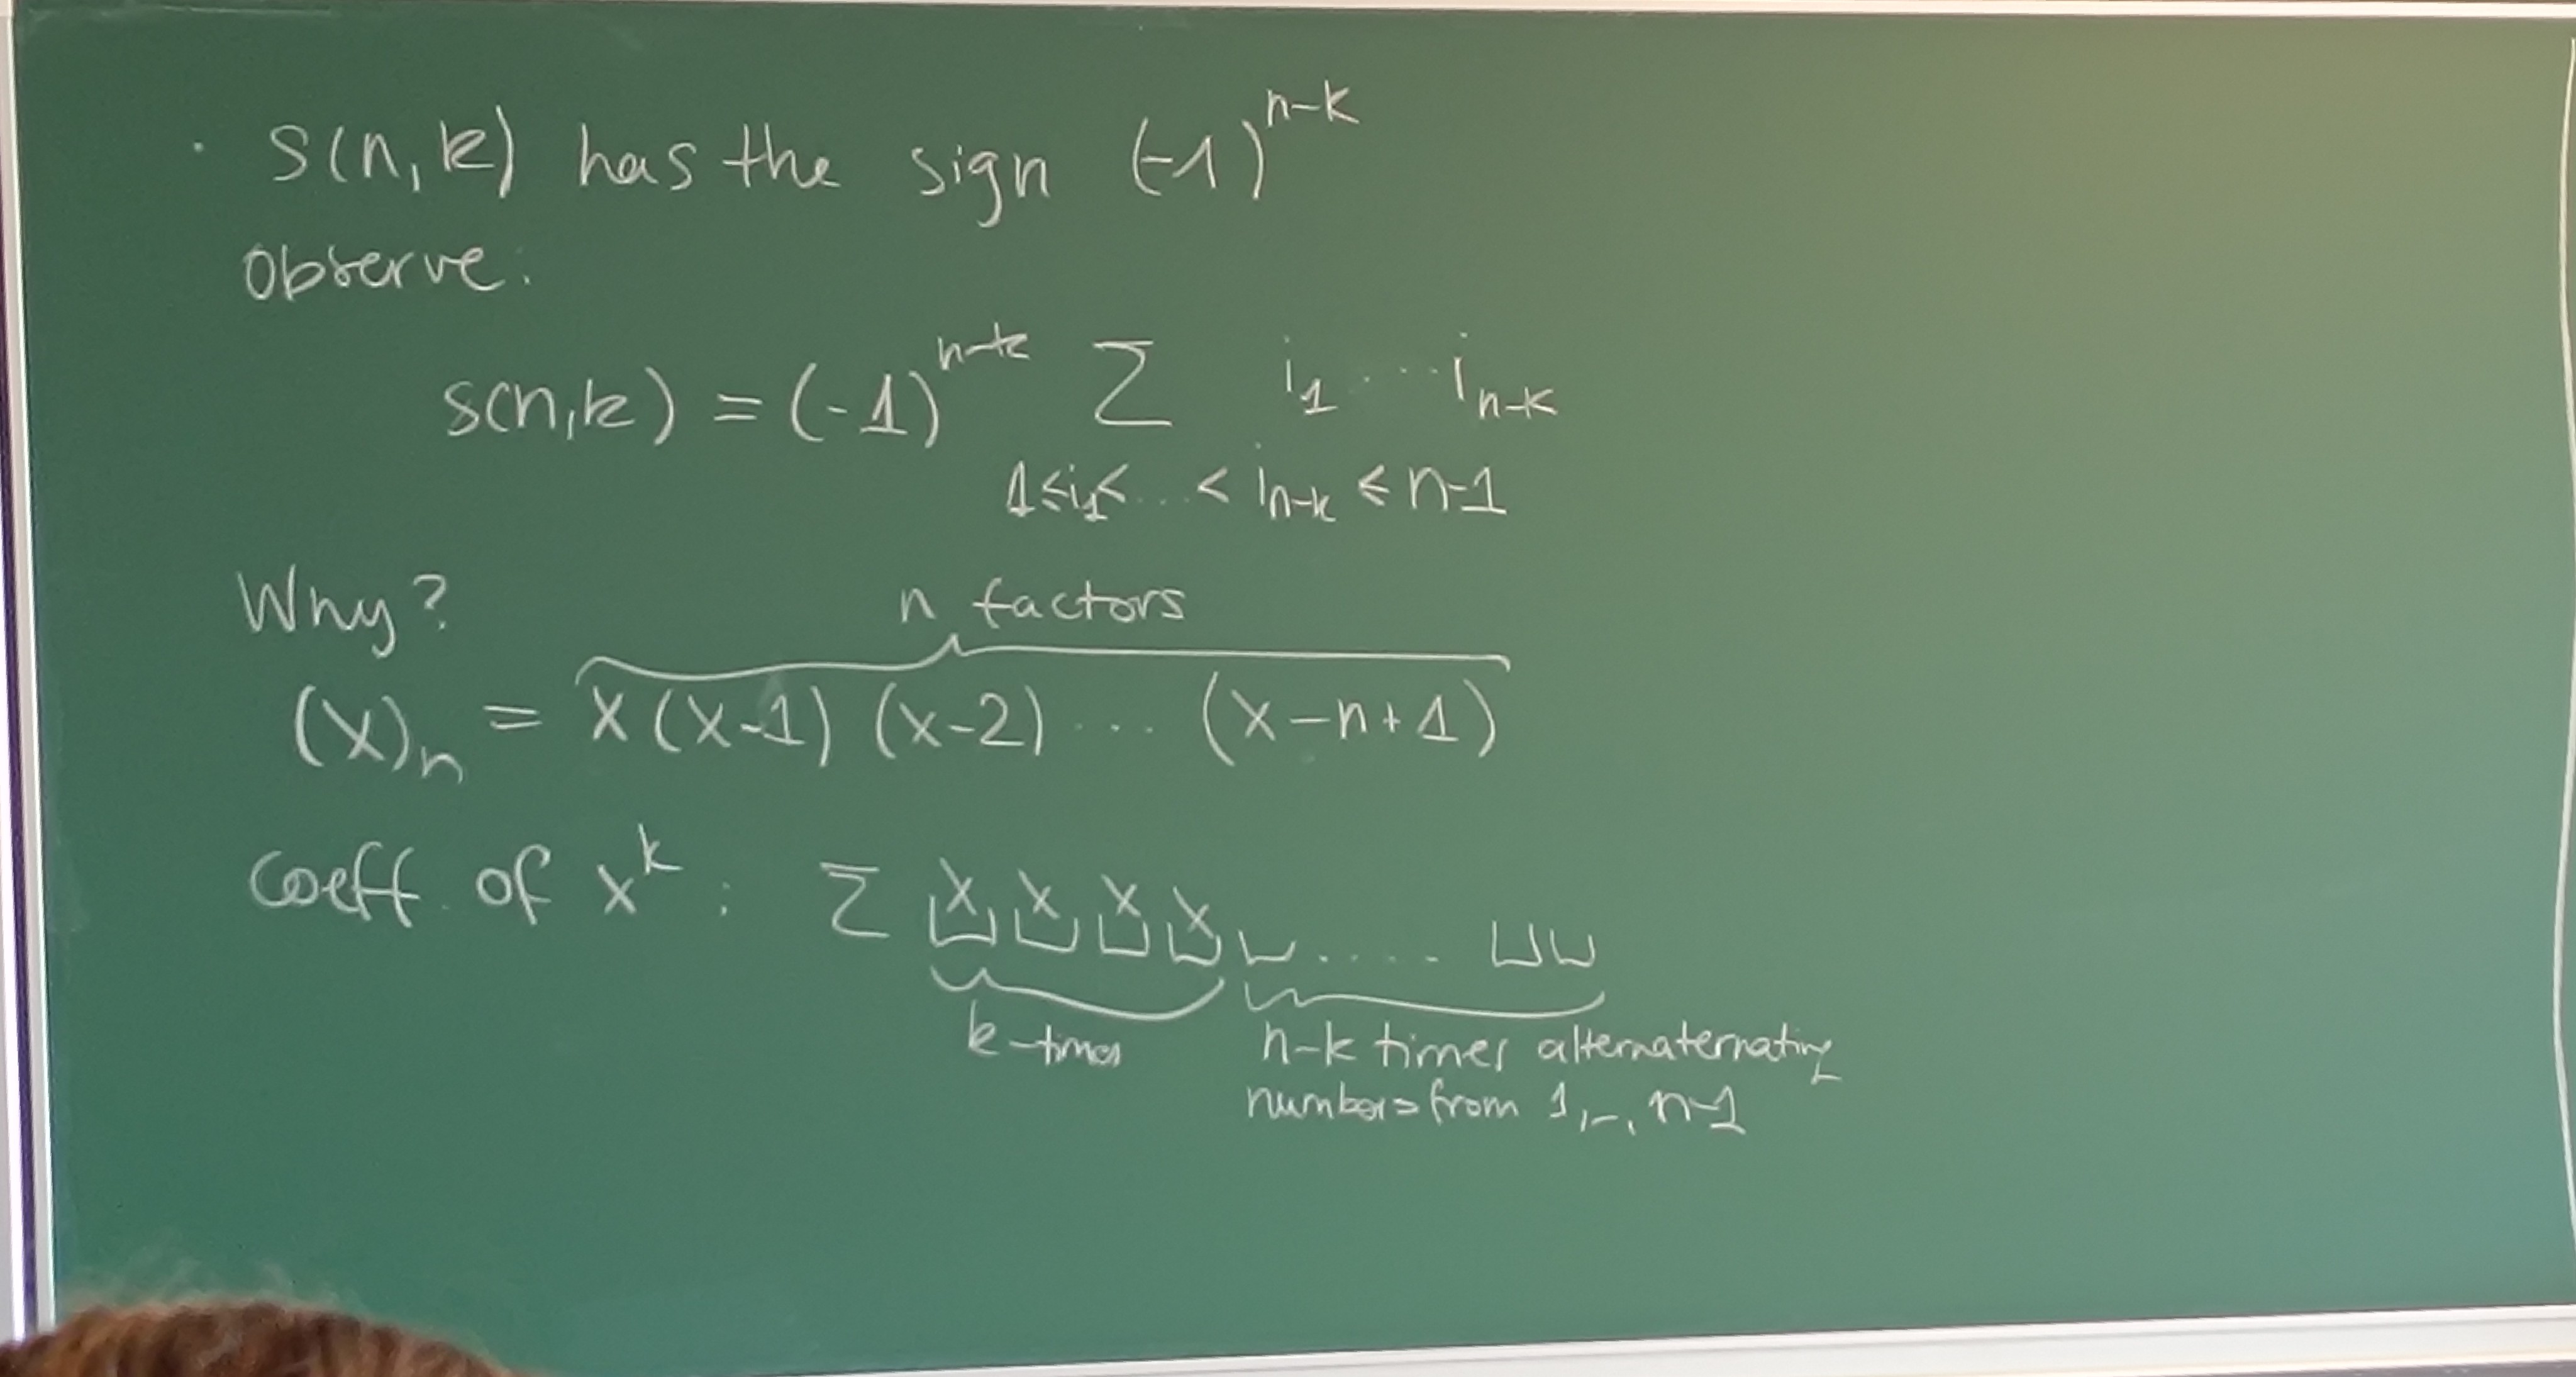 · s(n,k) has the sign (-1)^{n-k}
Observe:
s(n,k) = (-1)^{n-k} Σ i_1 ... i_{n-k}
1≤i_1< ... < i_{n-k} ≤ n-1
Why?
n factors
(x)_n = x(x-1)(x-2) ... (x-n+1)
Coeff. of x^k : Σ x x x x ....
k-times
n-k times alternaternating
numbers from 1,..., n-1